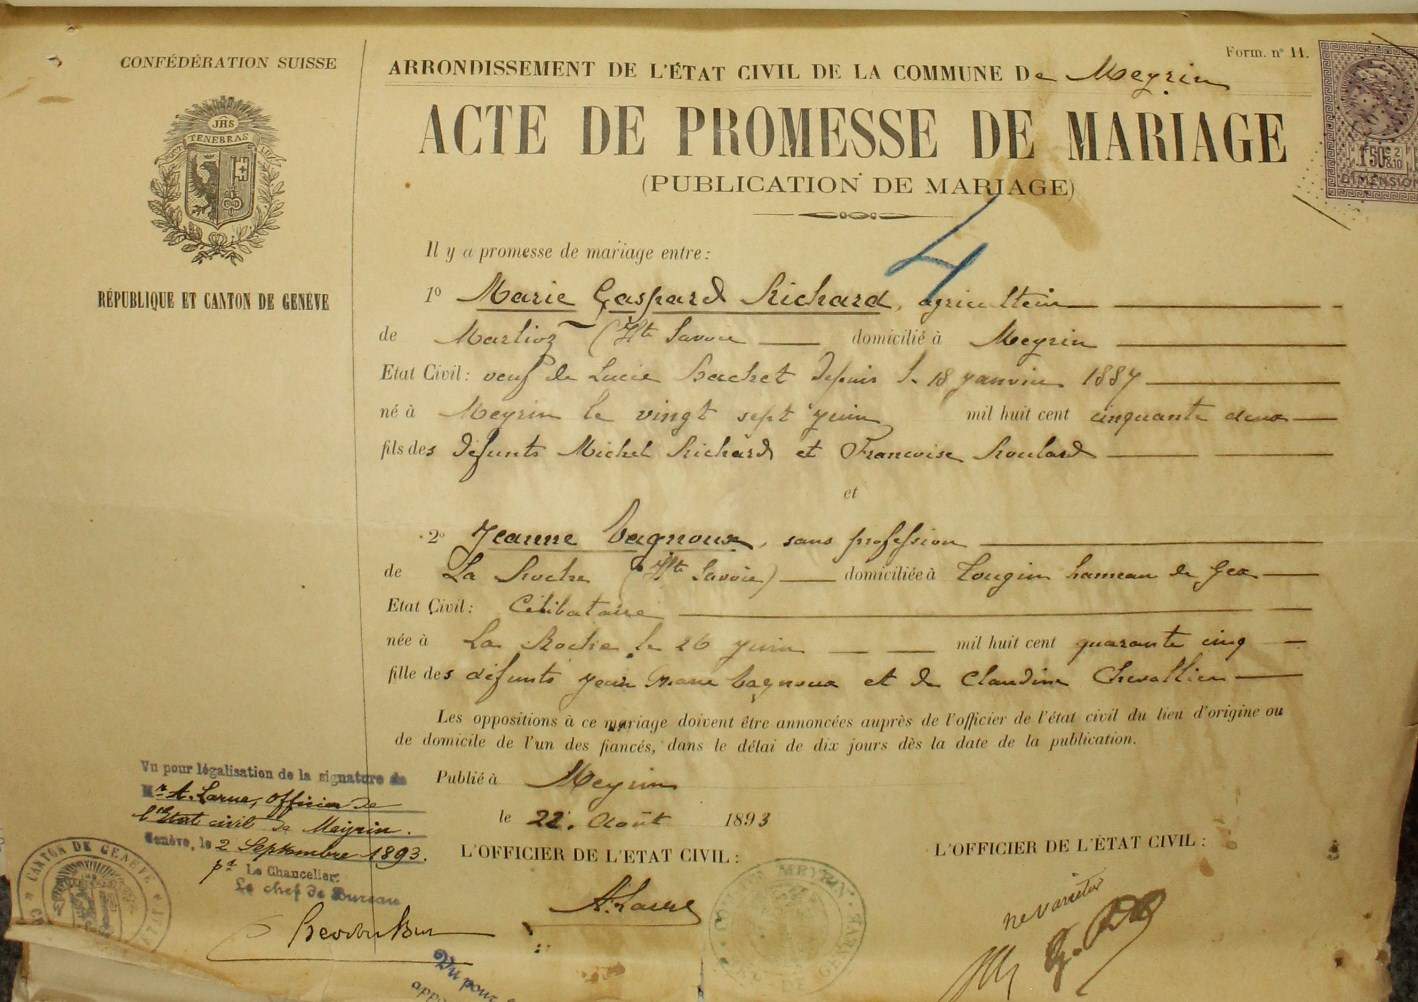 CONFÉDÉRATION SUISSE
JHS
TENEBRAS
RÉPUBLIQUE ET CANTON DE GENÈVE
Form. nº 11.
ARRONDISSEMENT DE L'ÉTAT CIVIL DE LA COMMUNE De Meyrin
1F50c 2
&10
DIMENSION
ACTE DE PROMESSE DE MARIAGE
(PUBLICATION DE MARIAGE)
4
Il y a promesse de mariage entre:
1º Marie Gaspard Richard, agriculteur
de Marlioz (Hte Savoie domicilié à Meyrin
Etat Civil: veuf de Lucie Bachet depuis le 18 janvier 1887
né à Meyrin le vingt sept juin mil huit cent cinquante deux
fils des défunts Michel Richard et Francoise Roulard
et
2º Jeanne Vagnoux, sans profession
de La Roche (Hte Savoie) domiciliée à Tougin hameau de Gex
Etat Civil: Célibataire
née à La Roche le 26 juin mil huit cent quarante cinq
fille des défunts Jean Marie Vagnoux et de Claudine Chevallier
Les oppositions à ce mariage doivent être annoncées auprès de l'officier de l'état civil du lieu d'origine ou
de domicile de l'un des fiancés, dans le délai de dix jours dès la date de la publication.
Publié à Meyrin
le 22. Août 1893
L'OFFICIER DE L'ETAT CIVIL:
A. Larue
L'OFFICIER DE L'ÉTAT CIVIL:
ne varietur
Vu pour légalisation de la signature de
Mr A. Larue, officier de
l'Etat civil de Meyrin.
Genève, le 2 Septembre 1893.
pr Le Chancelier:
Le chef de Bureau
CANTON DE GENÈVE
MEYRIN
Vu pour